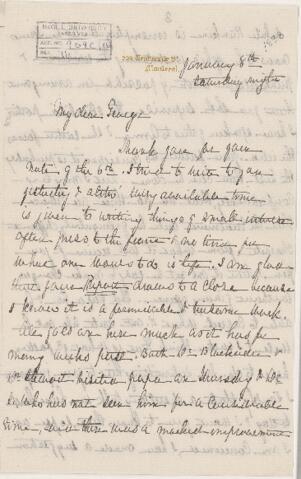 McGILL UNIVERSITY
ACC. NO.
Montreal
January 8th
Saturday night
My dear George
Thank you for your
note of the 6th. I love to write to you
yesterday & altho' every available time
is given to writing things of small interest
often press to the front & one time
what one wants to do is left. I am glad
that your Report draws to a close because
I know it is a formidable & tiresome work.
We jog on here much as it has for
many weeks past. Both Dr. Blackader &
Dr. Stewart visited papa on Thursday & Dr
S. who has not seen him for a considerable
time, said there was a marked improvement